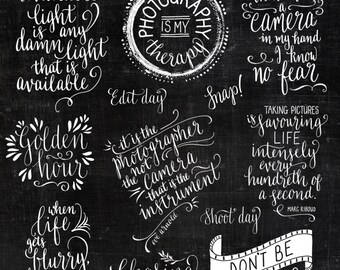 light
is any
damn light
that is
available
PHOTOGRAPHY
IS MY
therapy
a
camera
in my hand
I know
no fear
Edit day
Snap!
Golden
hour
it is the
photographer
not
the camera
that is the
instrument
eve arnold
TAKING PICTURES
is savouring
LIFE
intensely
every
hundreth of
a second.
MARC RIBOUD
Shoot day
when
life
gets
blurry
DON'T BE